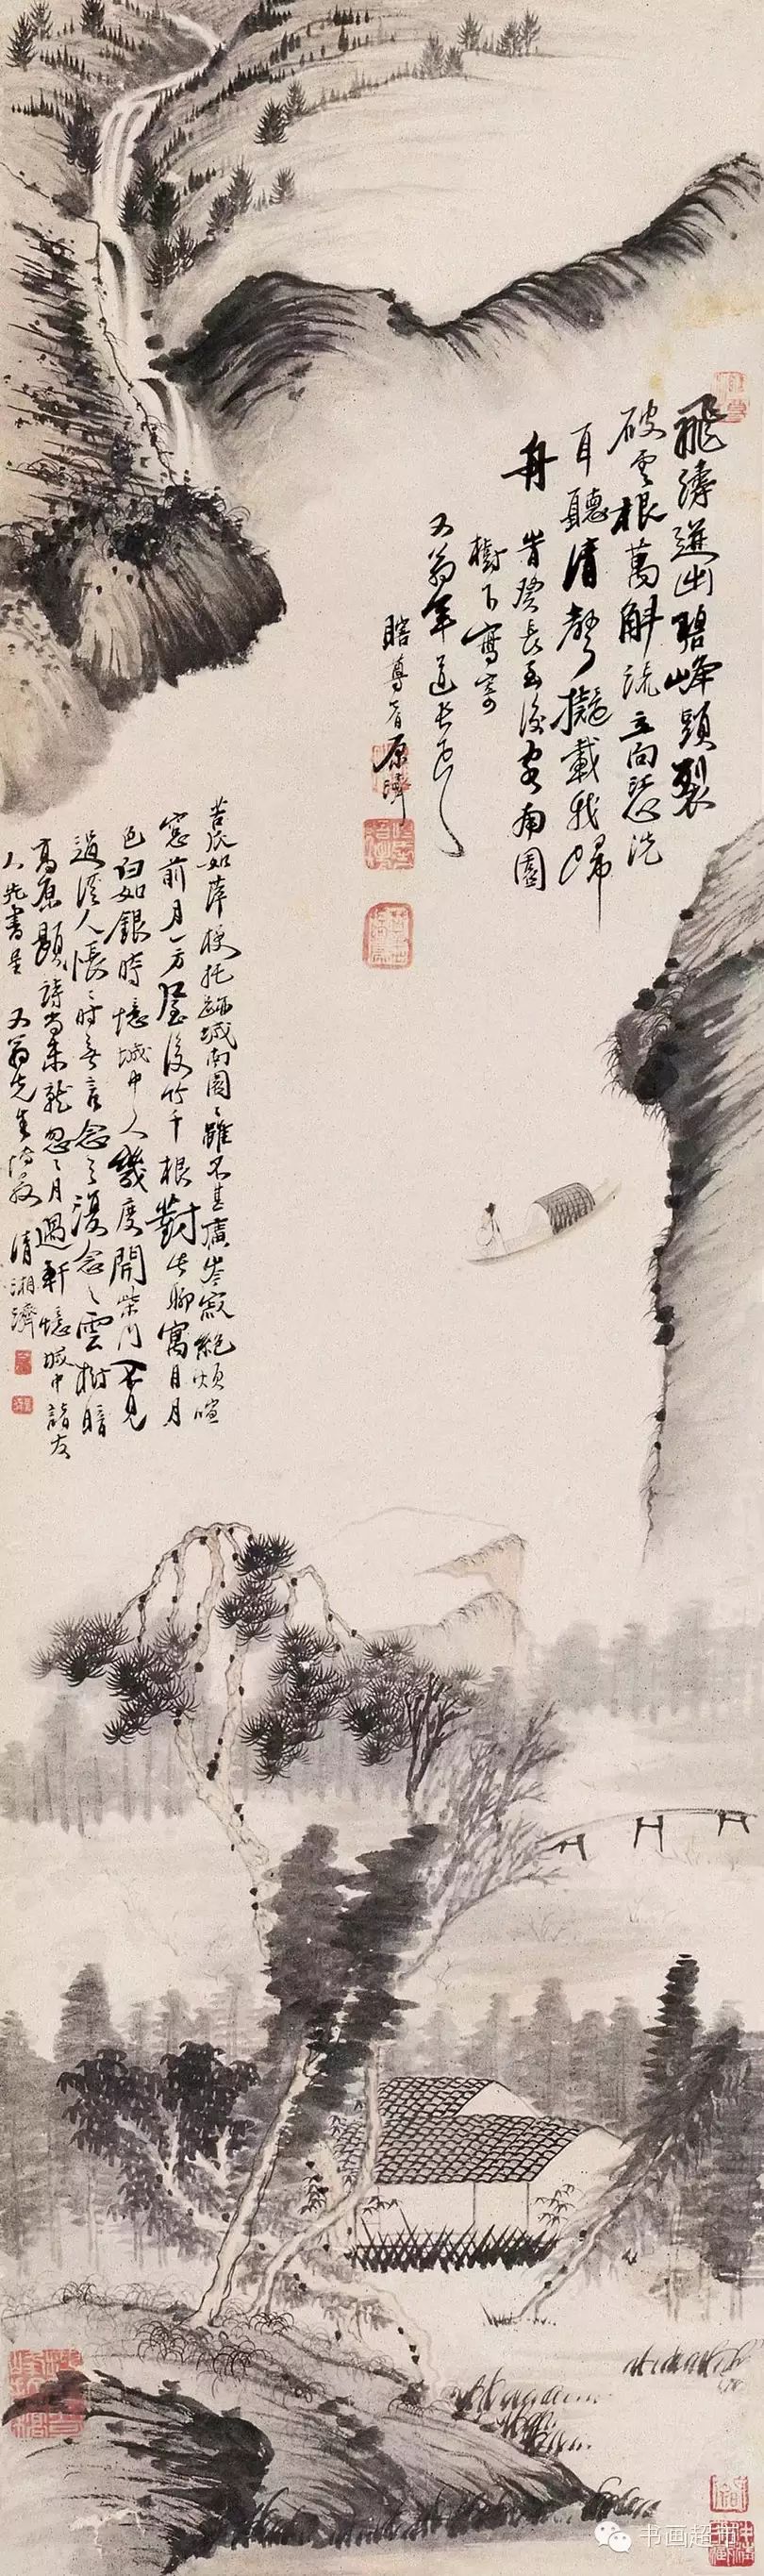 飛濤迸出碧峰頭裂
破雲根萬斛流立向
耳聽清聲擬載我歸
舟 
昔癸長至後客南園
樹下寫寄
又翁年道長兄
瞎尊者原濟
苦辰如萍梗托跡城南園園雖不甚廣岑寂絕煩喧
窓前月一方屋後竹千根對此聊寓目月
色白如銀時憶城中人幾度開柴門不見
過溪人悵悵時無言念之復念之雲樹暗
高原 題詩尚未就忽忽月過軒憶城中諸友
人先書呈 又翁先生 清湘濟
书画超市